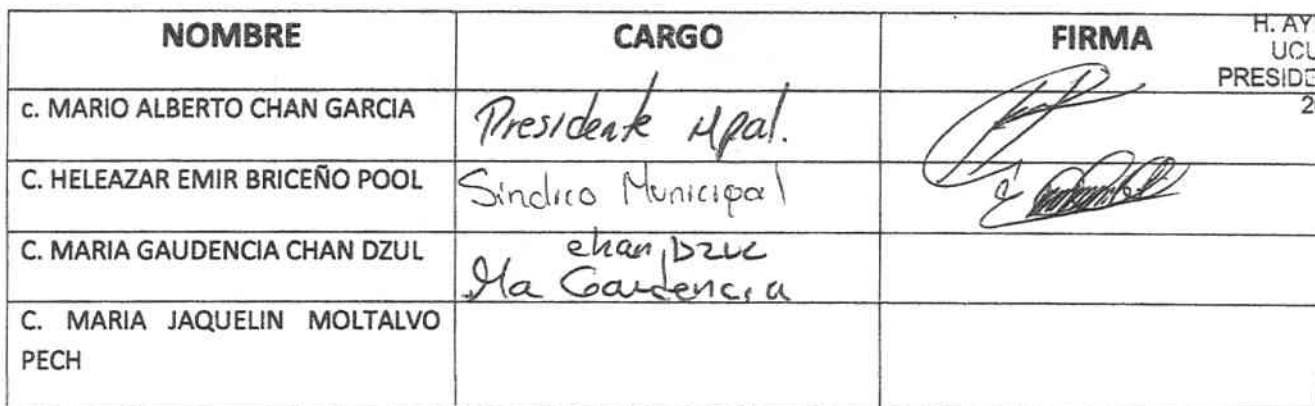 NOMBRE CARGO FIRMA
H. AY
UCU
PRESIDE
2
c. MARIO ALBERTO CHAN GARCIA Presidente Mpal.
C. HELEAZAR EMIR BRICEÑO POOL Sindico Municipal
C. MARIA GAUDENCIA CHAN DZUL chan Dzul
Ma Gaudencia
C. MARIA JAQUELIN MOLTALVO
PECH